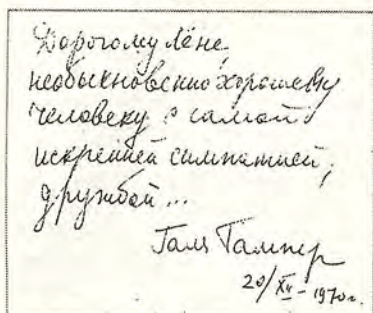 Дорогому Лёне,
необыкновенно хорошему
человеку с самой
искренней симпатией,
дружбой...
Галя Гампер
20/XII - 1970 г.